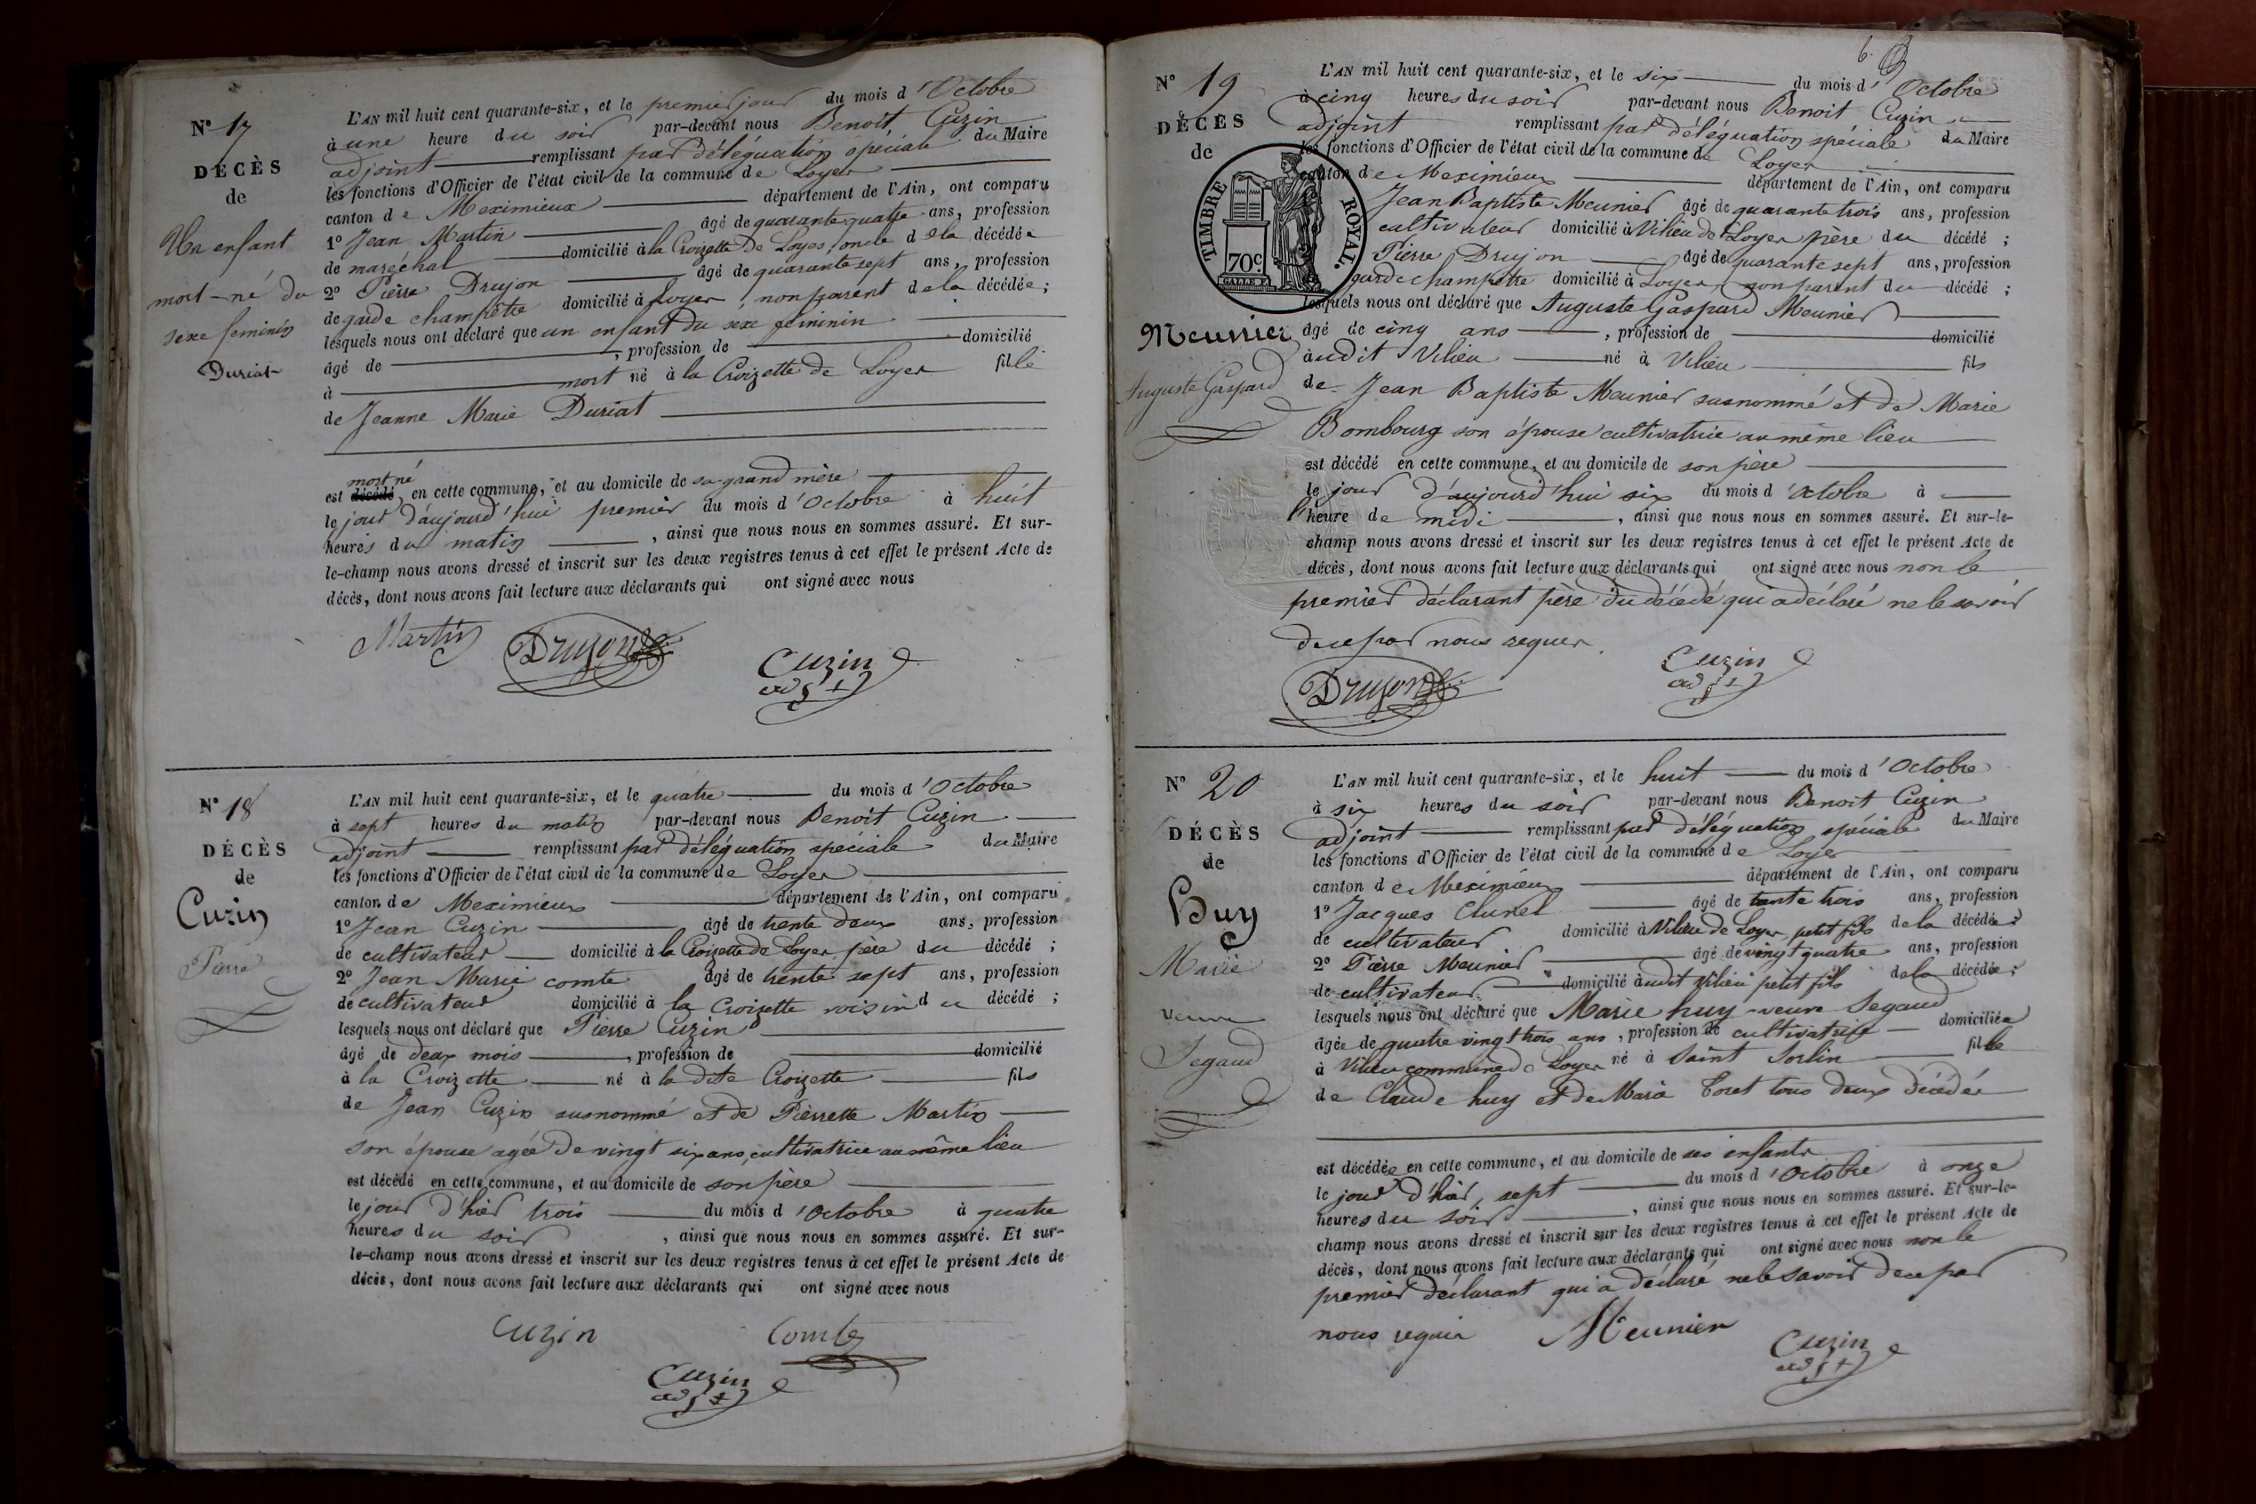 N° 17
DÉCÈS
de
Un enfant
mort-né du
sexe feminin
Duriat
L'AN mil huit cent quarante-six, et le premier jour du mois d'Octobre
à une heure du soir par-devant nous Benoit Cuzin
adjoint remplissant par déléguation spéciale du Maire
les fonctions d'Officier de l'état civil de la commune de Loyes
canton de Meximieux département de l'Ain, ont comparu
1° Jean Martin âgé de quarante quatre ans, profession
de maréchal domicilié à la Croizette de Loyes, oncle de la décédée
2° Pièrre Drujon âgé de quarante sept ans, profession
de garde champêtre domicilié à Loyes, non parent de la décédée ;
lesquels nous ont déclaré que un enfant du sexe féminin
âgé de , profession de domicilié
à mort né à la Croizette de Loyes fille
de Jeanne Marie Duriat
mort né
est décédé en cette commune, et au domicile de sa grand mère
le jour d'aujourd'hui premier du mois d'Octobre à huit
heures du matin , ainsi que nous nous en sommes assuré. Et sur-
le-champ nous avons dressé et inscrit sur les deux registres tenus à cet effet le présent Acte de
décès, dont nous avons fait lecture aux déclarants qui ont signé avec nous
Martin Drujon
Cuzin
adjt
N° 18
DÉCÈS
de
Cuzin
Pierre
L'AN mil huit cent quarante-six, et le quatre du mois d'Octobre
à sept heures du matin par-devant nous Benoit Cuzin
adjoint remplissant par déléguation spéciale du Maire
les fonctions d'Officier de l'état civil de la commune de Loyes
canton de Meximieux département de l'Ain, ont comparu
1° Jean Cuzin âgé de trente deux ans, profession
de cultivateur domicilié à la Croizette de Loyes père du décédé ;
2° Jean Marie comte âgé de trente sept ans, profession
de cultivateur domicilié à la Croizette voisin du décédé ;
lesquels nous ont déclaré que Pierre Cuzin
âgé de deux mois , profession de domicilié
à la Croizette né à la dite Croizette fils
de Jean Cuzin susnommé et de Pièrrette Martin
son épouse agée de vingt six ans, cultivatrice au même lieu
est décédé en cette commune, et au domicile de son père
le jour d'hier trois du mois d'Octobre à quatre
heures du soir , ainsi que nous nous en sommes assuré. Et sur-
le-champ nous avons dressé et inscrit sur les deux registres tenus à cet effet le présent Acte de
décès, dont nous avons fait lecture aux déclarants qui ont signé avec nous
Cuzin Comte
Cuzin
adjt
6.
N° 19
DÉCÈS
de
TIMBRE ROYAL.
70c.
Meunier
Auguste Gaspard
L'AN mil huit cent quarante-six, et le six du mois d'Octobre
à cinq heures du soir par-devant nous Benoit Cuzin
adjoint remplissant par déléguation spéciale du Maire
les fonctions d'Officier de l'état civil de la commune de Loyes
canton de Meximieux département de l'Ain, ont comparu
Jean Baptiste Meunier âgé de quarante trois ans, profession
cultivateur domicilié à Vilieu de Loyes père du décédé ;
Pierre Drujon âgé de quarante sept ans, profession
garde champêtre domicilié à Loyes non parent du décédé ;
lesquels nous ont déclaré que Auguste Gaspard Meunier
âgé de cinq ans , profession de domicilié
audit Vilieu né à Vilieu fils
de Jean Baptiste Meunier susnommé et de Marie
Bombourg son épouse cultivatrice au même lieu
est décédé en cette commune, et au domicile de son père
le jour d'aujourd'hui six du mois d'Octobre à
l'heure de midi , ainsi que nous nous en sommes assuré. Et sur-le-
champ nous avons dressé et inscrit sur les deux registres tenus à cet effet le présent Acte de
décès, dont nous avons fait lecture aux déclarants qui ont signé avec nous non le
premier déclarant père du décédé qui a déclaré ne le savoir
de ce par nous requer.
Drujon
Cuzin
adjt
N° 20
DÉCÈS
de
Huy
Marie
veuve
Segaud
L'AN mil huit cent quarante-six, et le huit du mois d'Octobre
à six heures du soir par-devant nous Benoit Cuzin
adjoint remplissant par déléguation spéciale du Maire
les fonctions d'Officier de l'état civil de la commune de Loyes
canton de Meximieux département de l'Ain, ont comparu
1° Jacques Clunet âgé de trente trois ans, profession
de cultivateur domicilié à Vilieu de Loyes, petit fils de la décédée ;
2° Pièrre Meunier âgé de vingt quatre ans, profession
de cultivateur domicilié audit Vilieu petit fils de la décédée ;
lesquels nous ont déclaré que Marie huy veuve Segaud
âgée de quatre vingt trois ans, profession de cultivatrice domiciliée
à Vilieu commune de Loyes né à Saint Sorlin fille
de Claude huy et de Marie Toret tous deux décédés
est décédée en cette commune, et au domicile de ses enfants
le jour d'hier, sept du mois d'Octobre à onze
heures du soir , ainsi que nous nous en sommes assuré. Et sur-le-
champ nous avons dressé et inscrit sur les deux registres tenus à cet effet le présent Acte de
décès, dont nous avons fait lecture aux déclarants qui ont signé avec nous non le
premier déclarant qui a déclaré ne le savoir de ce par
nous requis Meunier
Cuzin
adjt